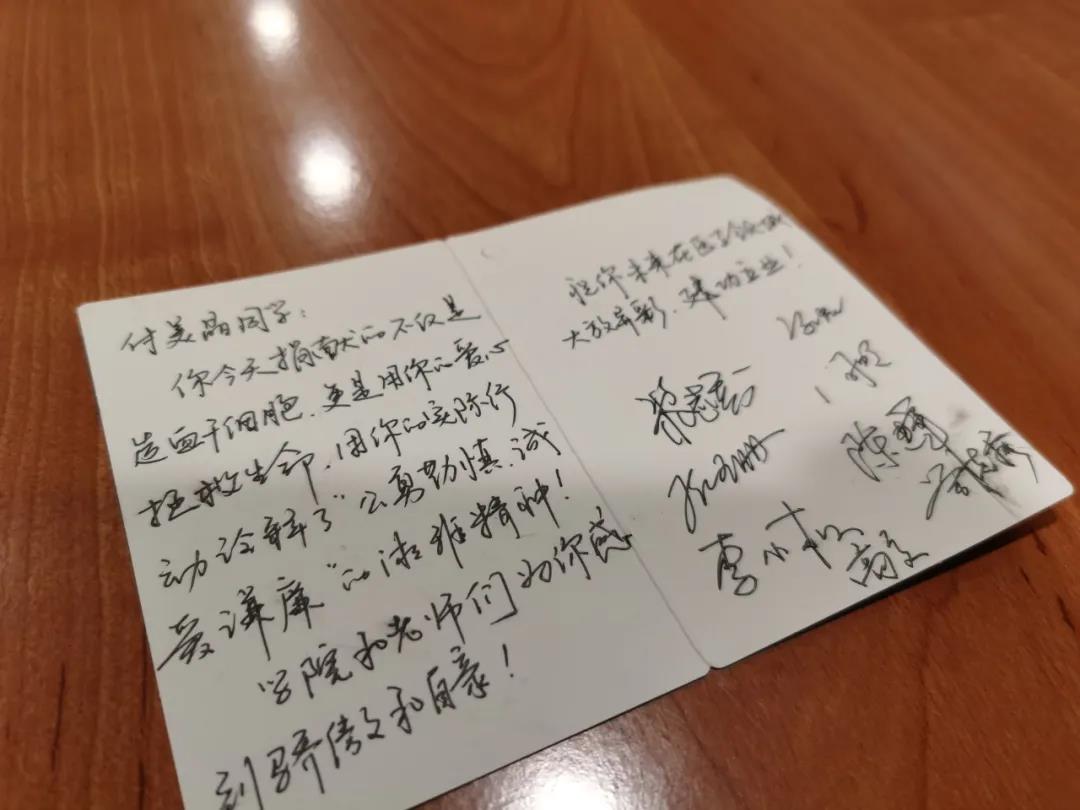 付美晶同学:
你今天捐献的不仅是
造血干细胞,更是用你的爱心
拯救生命,用你的实际行
动诠释了"公勇勤慎、诚
爱谦廉"的湘雅精神!
学院和老师们为你感
到骄傲和自豪!
祝你未来在医学领域
大放异彩,建功立业!
李小松